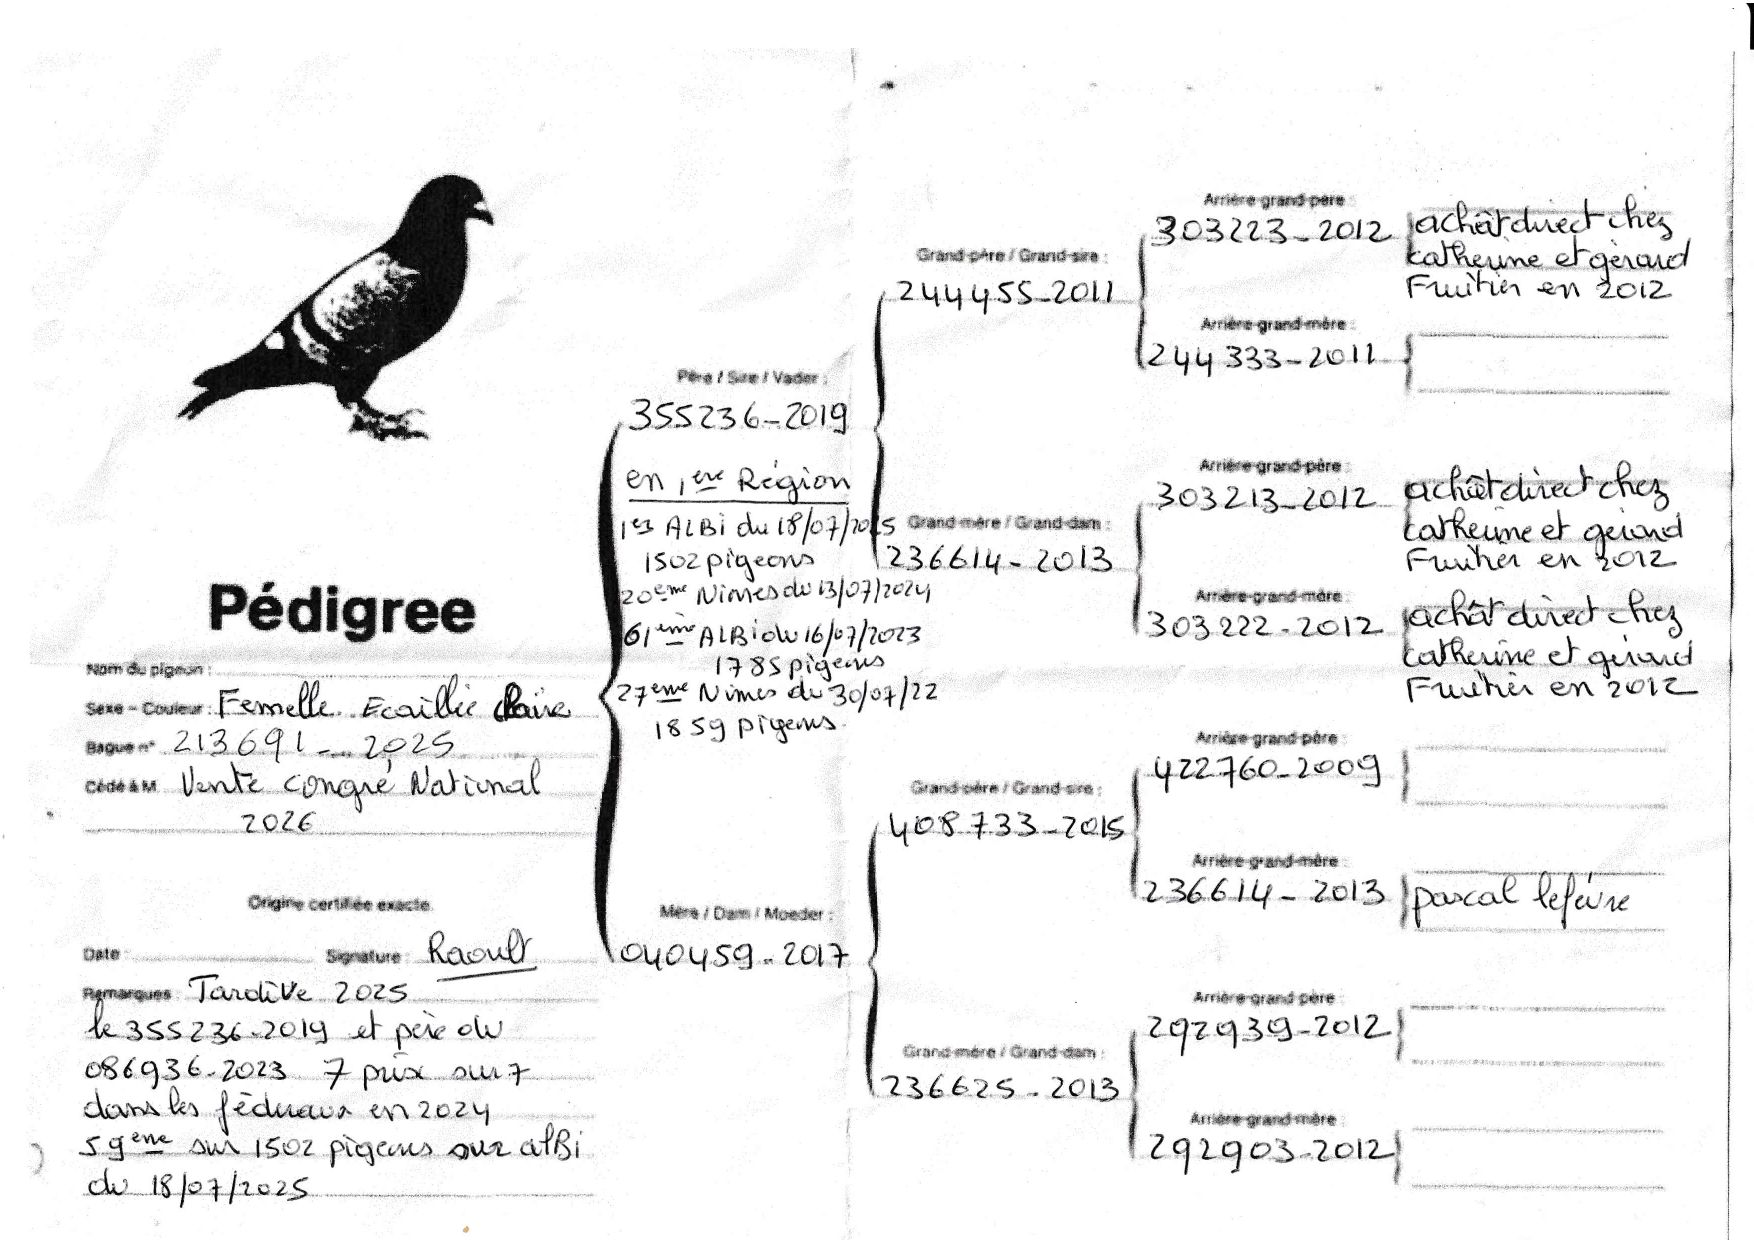 Pédigree
Nom du pigeon :
Sexe - Couleur : Femelle Ecaillée claire
Bague n° 213691 - 2025
Cédé à M. Vente congré National
2026
Origine certifiée exacte.
Date : Signature : Raoult
Remarques : Tardive 2025
le 355236-2019 et père du
086936-2023 7 prix sur 7
dans les féderaux en 2024
59ème sur 1502 pigeons sur alBi
du 18/07/2025
Père / Sire / Vader :
355236-2019
en 1ere Région
1er ALBi du 18/07/2025
1502 pigeons
20eme Nimes du 13/07/2024
61ème ALBi du 16/07/2023
1785 pigeons
27eme Nimes du 30/07/22
1859 pigeons
Mère / Dam / Moeder :
040459-2017
Grand-père / Grand-sire :
244455-2011
Grand-mère / Grand-dam :
236614-2013
Grand-père / Grand-sire :
408733-2015
Grand-mère / Grand-dam :
236625-2013
Arrière-grand-père :
303223-2012 achât direct chez
catherine et gérard
Fruitier en 2012
Arrière-grand-mère :
244333-2011
Arrière-grand-père :
303213-2012 achât direct chez
catherine et gérard
Fruitier en 2012
Arrière-grand-mère :
303222-2012 achât direct chez
catherine et gérard
Fruitier en 2012
Arrière-grand-père :
422760-2009
Arrière-grand-mère :
236614-2013 pascal lefévre
Arrière-grand-père :
292939-2012
Arrière-grand-mère :
292903-2012